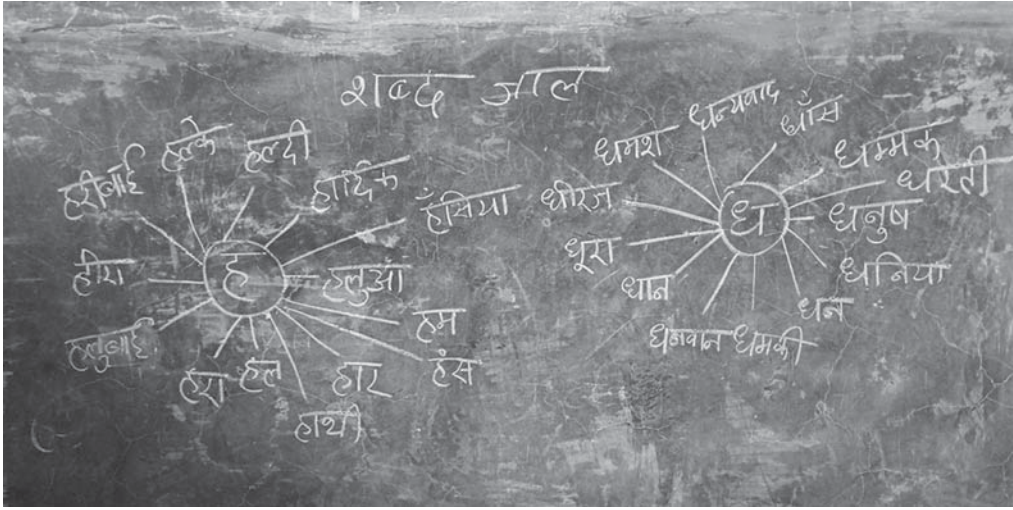 शब्द जाल
ह
हल्के
हल्दी
हार्दिक
हँसिया
हलुआ
हम
हंस
हार
हाथी
हल
हरा
हलुबाई
हीरा
हरीबाई
ध
धन्यवाद
धाँस
धम्मक
धरती
धनुष
धनिया
धन
धमकी
धनवान
धान
धूरा
धीरज
धमश